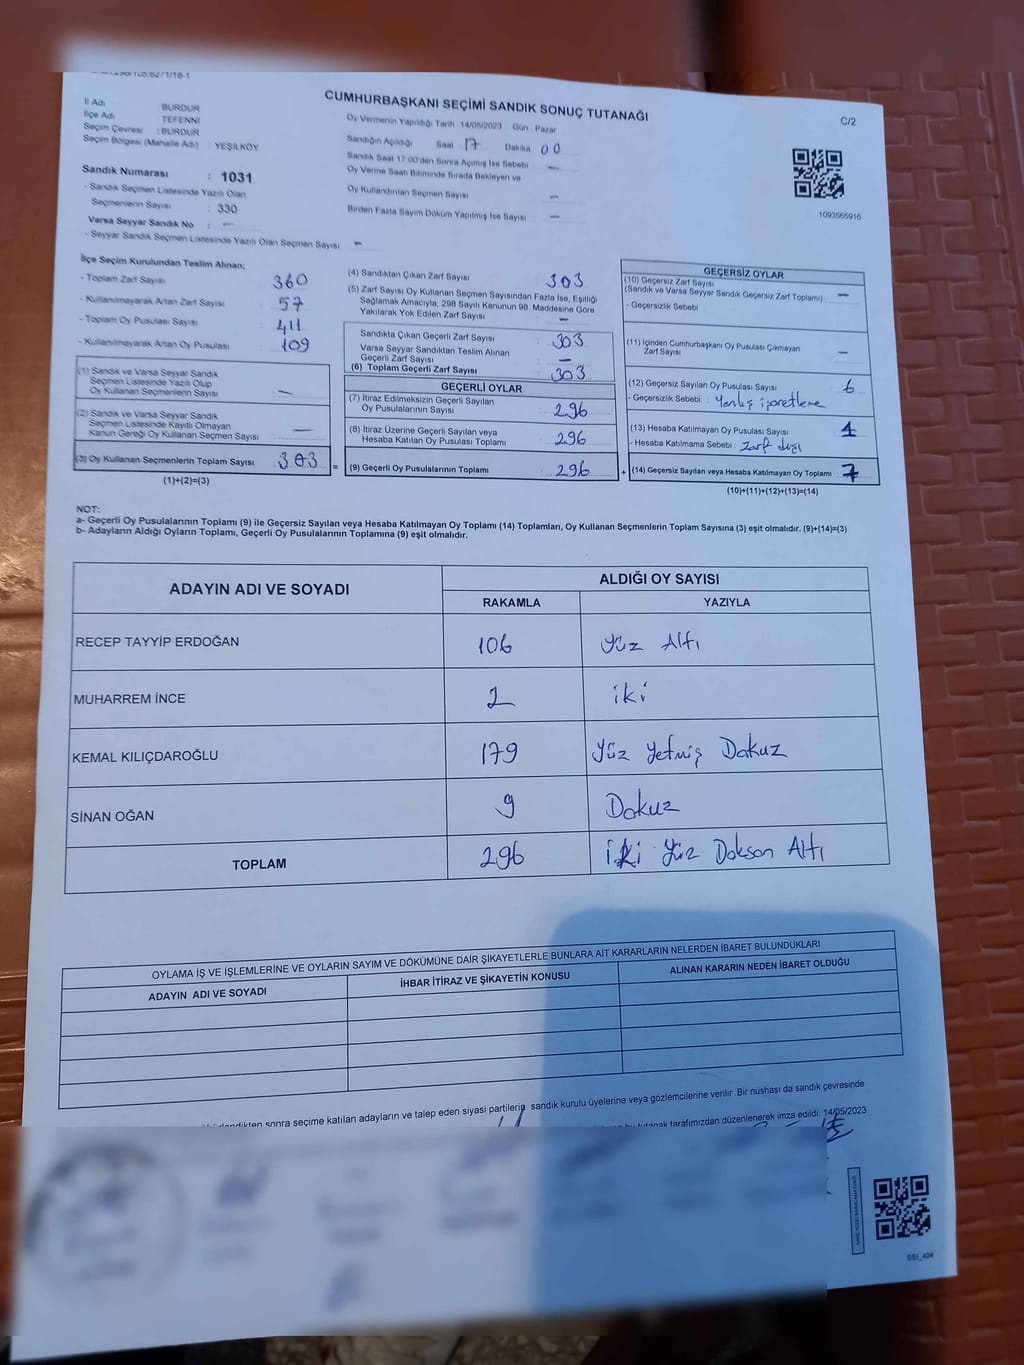 CUMHURBAŞKANI SEÇİMİ SANDIK SONUÇ TUTANAĞI
C/2
İl Adı BURDUR
İlçe Adı TEFENNİ
Seçim Çevresi : BURDUR
Seçim Bölgesi (Mahalle Adı) : YEŞİLKÖY
Sandık Numarası : 1031
- Sandık Seçmen Listesinde Yazılı Olan
Seçmenlerin Sayısı : 330
Varsa Seyyar Sandık No : -
- Seyyar Sandık Seçmen Listesinde Yazılı Olan Seçmen Sayısı : -
Oy Vermenin Yapıldığı Tarih : 14/05/2023 Gün : Pazar
Sandığın Açıldığı Saat 17 Dakika 00
Sandık Saat 17:00'den Sonra Açılmış İse Sebebi : -
Oy Verme Saati Bitiminde Sırada Bekleyen ve
Oy Kullandırılan Seçmen Sayısı : -
Birden Fazla Sayım Döküm Yapılmış İse Sayısı : -
1093565916
İlçe Seçim Kurulundan Teslim Alınan;
- Toplam Zarf Sayısı : 360
- Kullanılmayarak Artan Zarf Sayısı : 57
- Toplam Oy Pusulası Sayısı : 411
- Kullanılmayarak Artan Oy Pusulası : 109
(1) Sandık ve Varsa Seyyar Sandık
Seçmen Listesinde Yazılı Olup
Oy Kullanan Seçmenlerin Sayısı : -
(2) Sandık ve Varsa Seyyar Sandık
Seçmen Listesinde Kayıtlı Olmayan
Kanun Gereği Oy Kullanan Seçmen Sayısı : -
(3) Oy Kullanan Seçmenlerin Toplam Sayısı : 303
(1)+(2)=(3)
(4) Sandıktan Çıkan Zarf Sayısı : 303
(5) Zarf Sayısı Oy Kullanan Seçmen Sayısından Fazla İse, Eşitliği
Sağlamak Amacıyla, 298 Sayılı Kanunun 98. Maddesine Göre
Yakılarak Yok Edilen Zarf Sayısı : -
Sandıkta Çıkan Geçerli Zarf Sayısı : 303
Varsa Seyyar Sandıktan Teslim Alınan
Geçerli Zarf Sayısı : -
(6) Toplam Geçerli Zarf Sayısı : 303
GEÇERLİ OYLAR
(7) İtiraz Edilmeksizin Geçerli Sayılan
Oy Pusulalarının Sayısı : 296
(8) İtiraz Üzerine Geçerli Sayılan veya
Hesaba Katılan Oy Pusulası Toplamı : 296
= (9) Geçerli Oy Pusulalarının Toplamı : 296
GEÇERSİZ OYLAR
(10) Geçersiz Zarf Sayısı
(Sandık ve Varsa Seyyar Sandık Geçersiz Zarf Toplamı) : -
- Geçersizlik Sebebi :
(11) İçinden Cumhurbaşkanı Oy Pusulası Çıkmayan
Zarf Sayısı : -
(12) Geçersiz Sayılan Oy Pusulası Sayısı : 6
- Geçersizlik Sebebi : Yanlış işaretleme
(13) Hesaba Katılmayan Oy Pusulası Sayısı : 1
- Hesaba Katılmama Sebebi : Zarf dışı
+ (14) Geçersiz Sayılan veya Hesaba Katılmayan Oy Toplamı : 7
(10)+(11)+(12)+(13)=(14)
NOT:
a- Geçerli Oy Pusulalarının Toplamı (9) ile Geçersiz Sayılan veya Hesaba Katılmayan Oy Toplamı (14) Toplamları, Oy Kullanan Seçmenlerin Toplam Sayısına (3) eşit olmalıdır. (9)+(14)=(3)
b- Adayların Aldığı Oyların Toplamı, Geçerli Oy Pusulalarının Toplamına (9) eşit olmalıdır.
ADAYIN ADI VE SOYADI ALDIĞI OY SAYISI
RAKAMLA YAZIYLA
RECEP TAYYİP ERDOĞAN 106 Yüz Altı
MUHARREM İNCE 2 iki
KEMAL KILIÇDAROĞLU 179 Yüz Yetmiş Dokuz
SİNAN OĞAN 9 Dokuz
TOPLAM 296 iki Yüz Doksan Altı
OYLAMA İŞ VE İŞLEMLERİNE VE OYLARIN SAYIM VE DÖKÜMÜNE DAİR ŞİKAYETLERLE BUNLARA AİT KARARLARIN NELERDEN İBARET BULUNDUKLARI
ADAYIN ADI VE SOYADI İHBAR İTİRAZ VE ŞİKAYETİN KONUSU ALINAN KARARIN NEDEN İBARET OLDUĞU
sonra seçime katılan adayların ve talep eden siyasi partilerin sandık kurulu üyelerine veya gözlemcilerine verilir. Bir nüshası da sandık çevresinde
bu tutanak tarafımızdan düzenlenerek imza edildi. 14/05/2023
SSI_404